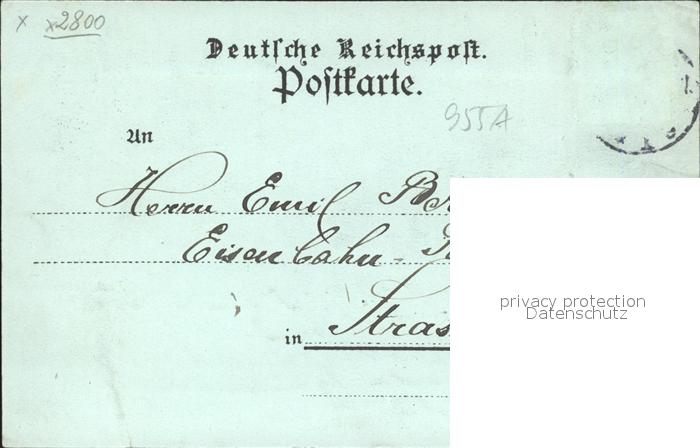 x x2800
Deutsche Reichspost.
Postkarte.
955A
An
Herrn Emil
Eisenbahn-
in Stras
privacy protection
Datenschutz